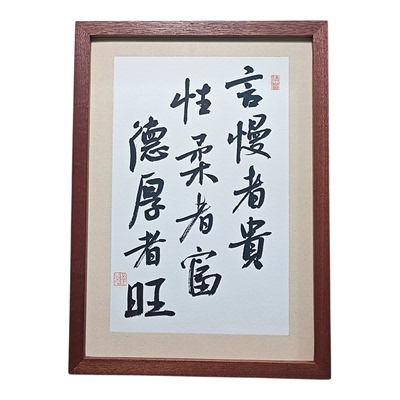 言慢者貴
性柔者富
德厚者旺